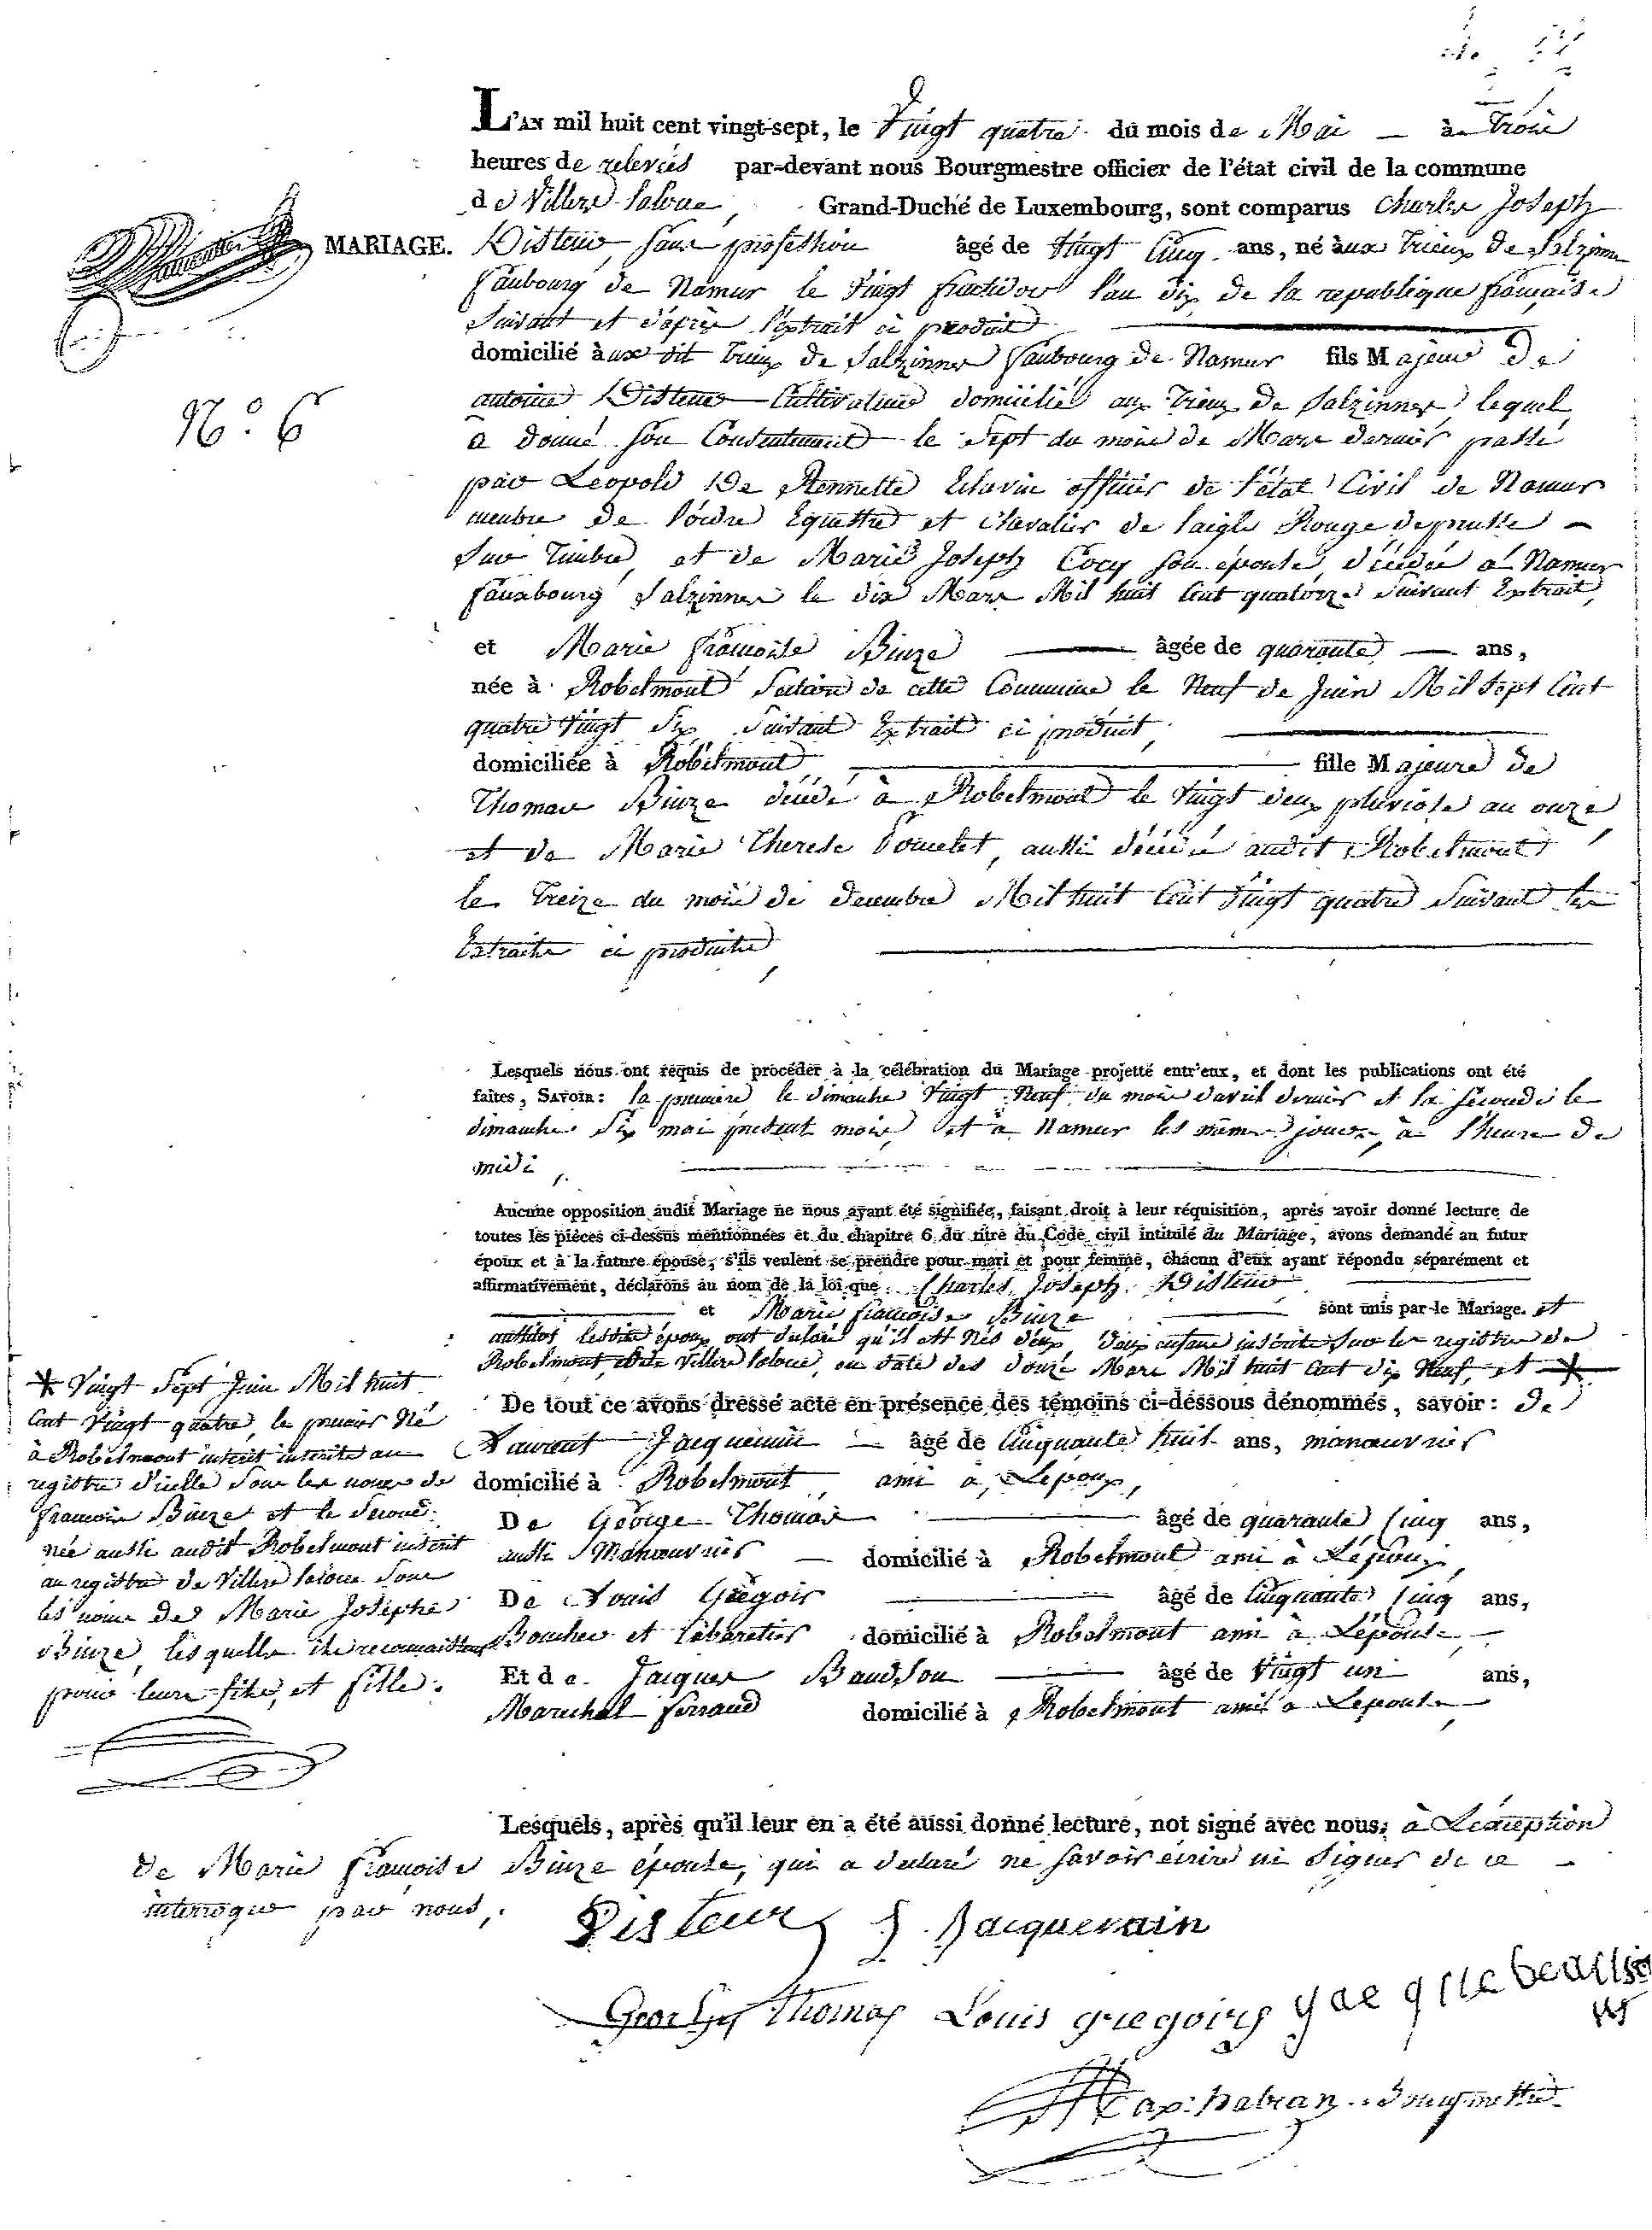 L'AN mil huit cent vingt-sept, le Vingt quatre du mois de Mai — à Trois
heures de relevées par-devant nous Bourgmestre officier de l'état civil de la commune
de Villers laloue, Grand-Duché de Luxembourg, sont comparus Charles Joseph
MARIAGE. Disteur, sans profession âgé de Vingt Cinq ans, né aux Trieux de Salzinne
faubourg de Namur le Vingt fructidor l'an dix de la republique française
suivant et d'après l'extrait ci produit
domicilié aux dit Trieux de Salzinnes faubourg de Namur fils Majeur de
N° 6
antoine Disteur Cultivateur domicilié aux Trieux de Salzinnes lequel
a donné son Consentement le Sept du mois de Mars dernier passé
par Léopold De Rennette Echevin officier de l'état Civil de Namur
membre de l'ordre Equestre et chevalier de l'aigle Rouge de prusse —
sur Timbre, et de Marie Joseph Cocq son épouse, décédée à Namur
fauxbourg Salzinnes le dix Mars Mil huit Cent quatorze Suivant Extrait,
et Marie françoise Binze âgée de quarante ans,
née à Robelmont Section de cette Commune le Neuf de Juin Mil Sept Cent
quatre Vingt Six Suivant Extrait ci produit,
domiciliée à Robelmont fille Majeure de
Thomas Binze décédé à Robelmont le Vingt deux pluviose an onze
et de Marie Therese Poncelet, aussi décédée audit Robelmont
le Treize du mois de decembre Mil huit Cent Vingt quatre Suivant les
Extraits ci produits
Lesquels nous ont requis de procéder à la célébration du Mariage projetté entr'eux, et dont les publications ont été
faites, SAVOIR: la premiere le dimanche Vingt Neuf du mois d'avril dernier et la seconde le
dimanche Six mai présent mois, et à Namur les mêmes jours, à l'heure de
midi,
Aucune opposition audit Mariage ne nous ayant été signifiée, faisant droit à leur réquisition, après avoir donné lecture de
toutes les pièces ci-dessus mentionnées et du chapitre 6 du titre du Code civil intitulé du Mariage, avons demandé au futur
époux et à la future épouse, s'ils veulent se prendre pour mari et pour femme, chacun d'eux ayant répondu séparément et
affirmativement, déclarons au nom de la loi que Charles Joseph Disteur
et Marie françoise Binze sont unis par le Mariage. et
aussitot lesdits époux ont déclaré qu'il est nés d'eux deux enfans inscrits sur les registres de
Robelmont, et de Villers laloue, en date des douze Mars Mil huit Cent dix Neuf, et *
* Vingt Sept Juin Mil huit
Cent Vingt quatre, le premier Né
à Robelmont inscrit inscrits au
registre d'icelle sous les noms de
françois Binze et le Second
née aussi audit Robelmont inscrit
au registre de Villers laloue sous
les noms de Marie Josephe
Binze, lesquelles ils reconnaissent
pour leurs fils, et fille.
De tout ce avons dressé acte en présence des témoins ci-dessous dénommés, savoir: de
Laurent Jacquemin — âgé de Cinquante huit ans, manœuvrier
domicilié à Robelmont, ami à l'époux,
De George Thomas âgé de quarante Cinq ans,
aussi Manœuvrier — domicilié à Robelmont ami à l'époux,
De Louis Grégoir âgé de Cinquante Cinq ans,
Boucher et Cabaretier domicilié à Robelmont ami à l'épouse
Et de Jacques Baudson âgé de Vingt un ans,
Marechal ferrand domicilié à Robelmont ami à l'épouse
Lesquels, après qu'il leur en a été aussi donné lecture, not signé avec nous, à L'exception
de Marie françoise Binze épouse, qui a declaré ne savoir écrire ni signer de ce
interrogée par nous,
Disteur J. Jacquemain
George Thomas Louis gregoire
Bourgmestre